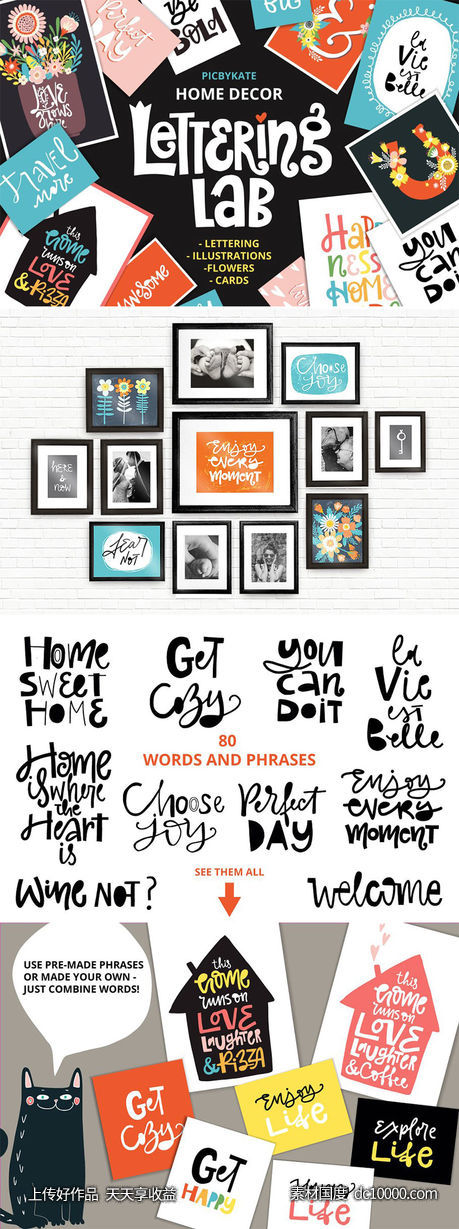 Perfect
Day
BE
BOLD
la
Vie
est
Belle
LOVE
grows
here
PICBYKATE
HOME DECOR
LETTERING
LAB
travel
more
- LETTERING
- ILLUSTRATIONS
-FLOWERS
- CARDS
this
Home
runs on
LOVE
& PIZZA
awesome
HAPPI
NESS
HOME
you
CAN
DO IT
Choose
Joy
here
& now
Enjoy
EVERY
MOMENT
fear
NOT
Home
SWEET
HOME
Get
Cozy
you
CAN
DO IT
la
Vie
est
Belle
80
WORDS AND PHRASES
Home
is where
the
Heart
is
Choose
Joy
Perfect
DAY
Enjoy
EVERY
MOMENT
SEE THEM ALL
WINE NOT?
welcome
USE PRE-MADE PHRASES
OR MADE YOUR OWN -
JUST COMBINE WORDS!
this
Home
runs on
LOVE
Laughter
& PIZZA
this
Home
runs on
LOVE
Laughter
& Coffee
Get
Cozy
Enjoy
Life
Explore
Life
Get
HAPPY
Life
上传好作品 天天享收益
素材国度 dc10000.com